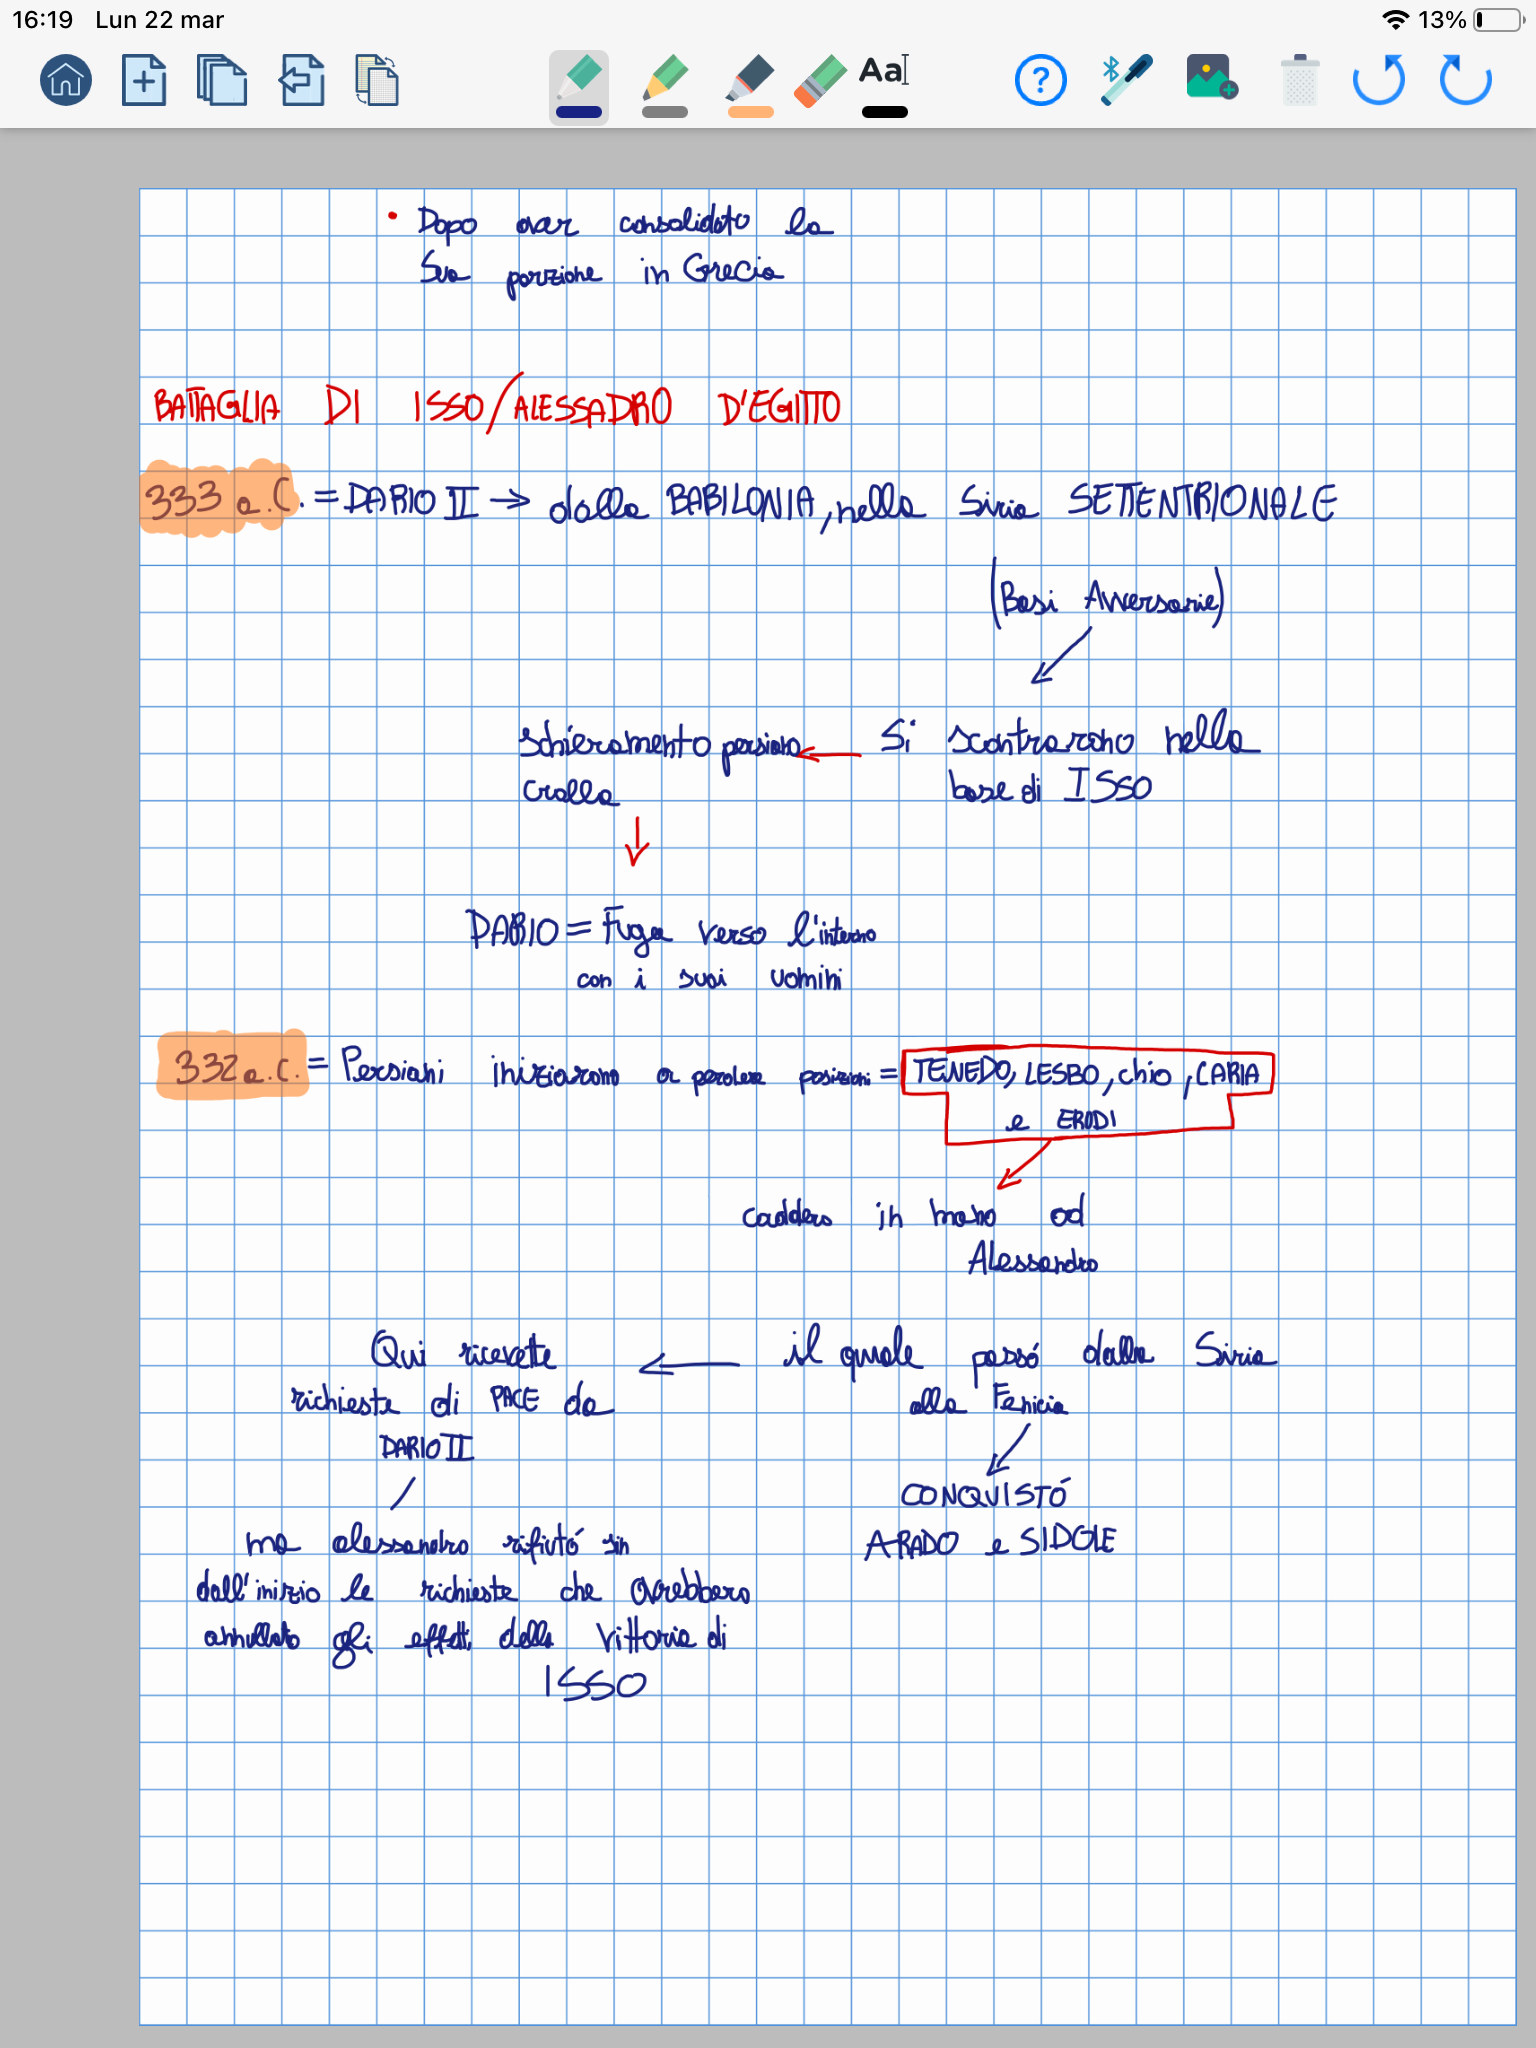 16:19 Lun 22 mar 13%
Aa
?
• Dopo aver consolidato la
sua porzione in Grecia
BATTAGLIA DI ISSO/ALESSADRO D'EGITTO
333 a.C. = DARIO II → dalla BABILONIA, nella Siria SETTENTRIONALE
(Basi Avversarie)
schieramento persiano ← Si scontrarono nella
crolla base di ISSO
DARIO = Fuga verso l'interno
con i suoi uomini
332 a.C. = Persiani iniziarono a perdere posizioni = TENEDO, LESBO, chio, CARIA
e ERODI
caddero in mano ad
Alessandro
Qui ricevette ← il quale passó dalla Siria
richieste di PACE da alla Fenicia
DARIO II
CONQUISTÓ
ma alessandro rifiutó sin ARADO e SIDOLE
dall'inizio le richieste che avrebbero
annullato gli effetti della vittoria di
ISSO